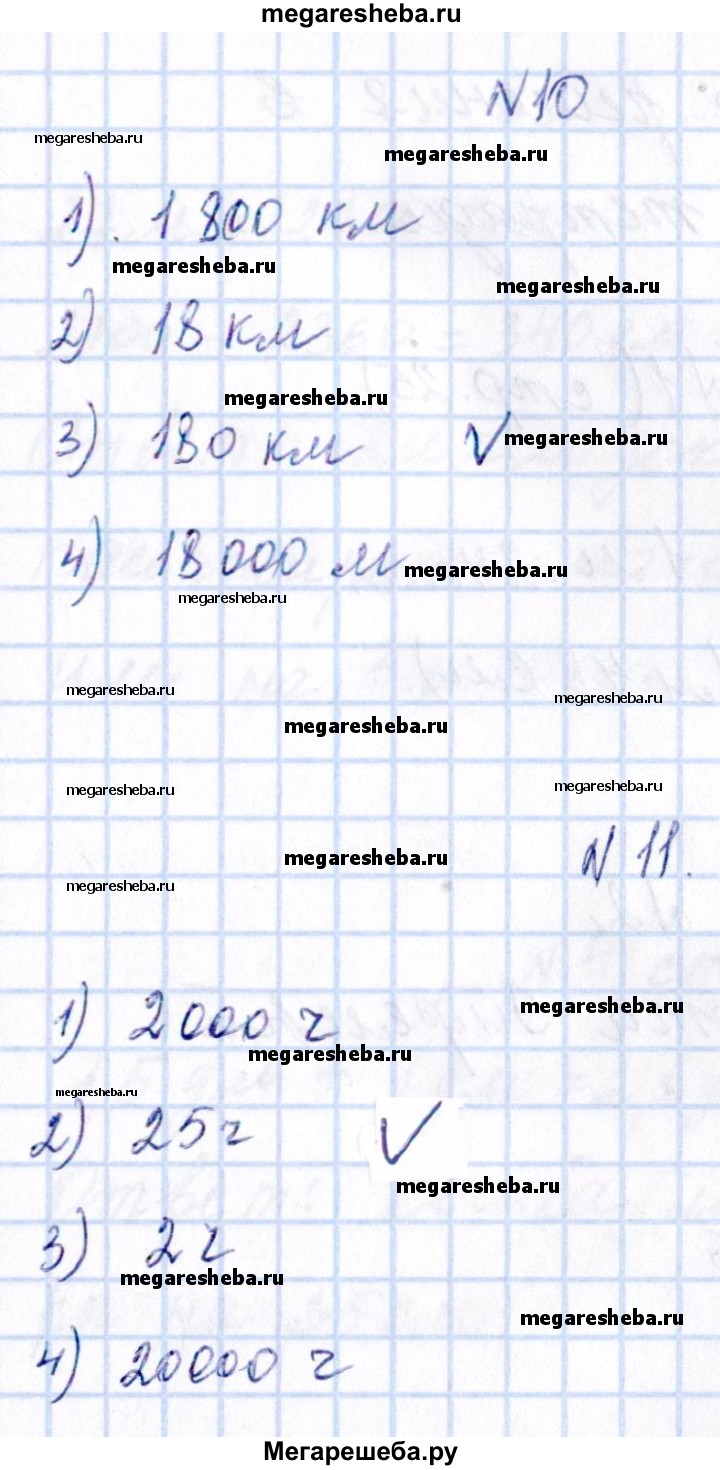 megaresheba.ru
№10
megaresheba.ru
megaresheba.ru
1). 1 800 км
megaresheba.ru
megaresheba.ru
2) 18 км
megaresheba.ru
3) 180 км ✓ megaresheba.ru
4) 18 000 м megaresheba.ru
megaresheba.ru
megaresheba.ru
megaresheba.ru
megaresheba.ru
megaresheba.ru
megaresheba.ru
№ 11.
megaresheba.ru
megaresheba.ru
megaresheba.ru
1) 2000 г
megaresheba.ru
megaresheba.ru
2) 25 г ✓
megaresheba.ru
3) 2 г
megaresheba.ru
megaresheba.ru
4) 20000 г
Мегарешеба.ру